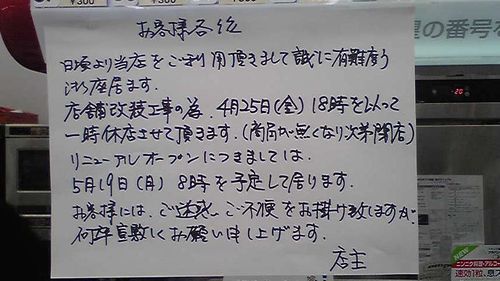 ¥300
¥300
お客様各位
日頃より当店をご利用頂きまして誠に有難う
御座居ます。
店舗改装工事の為、4月25日(金)18時を以って
一時休店させて頂きます。(商品が無くなり次第閉店)
リニューアルオープンにつきましては、
5月19日(月)8時を予定して居ります。
お客様には、ご迷惑、ご不便をお掛け致しますが、
何卒宜敷しくお願い申し上げます。
店主
の番号を
-20
NEW
ニンニク料理・アルコー
速効1粒、息ス